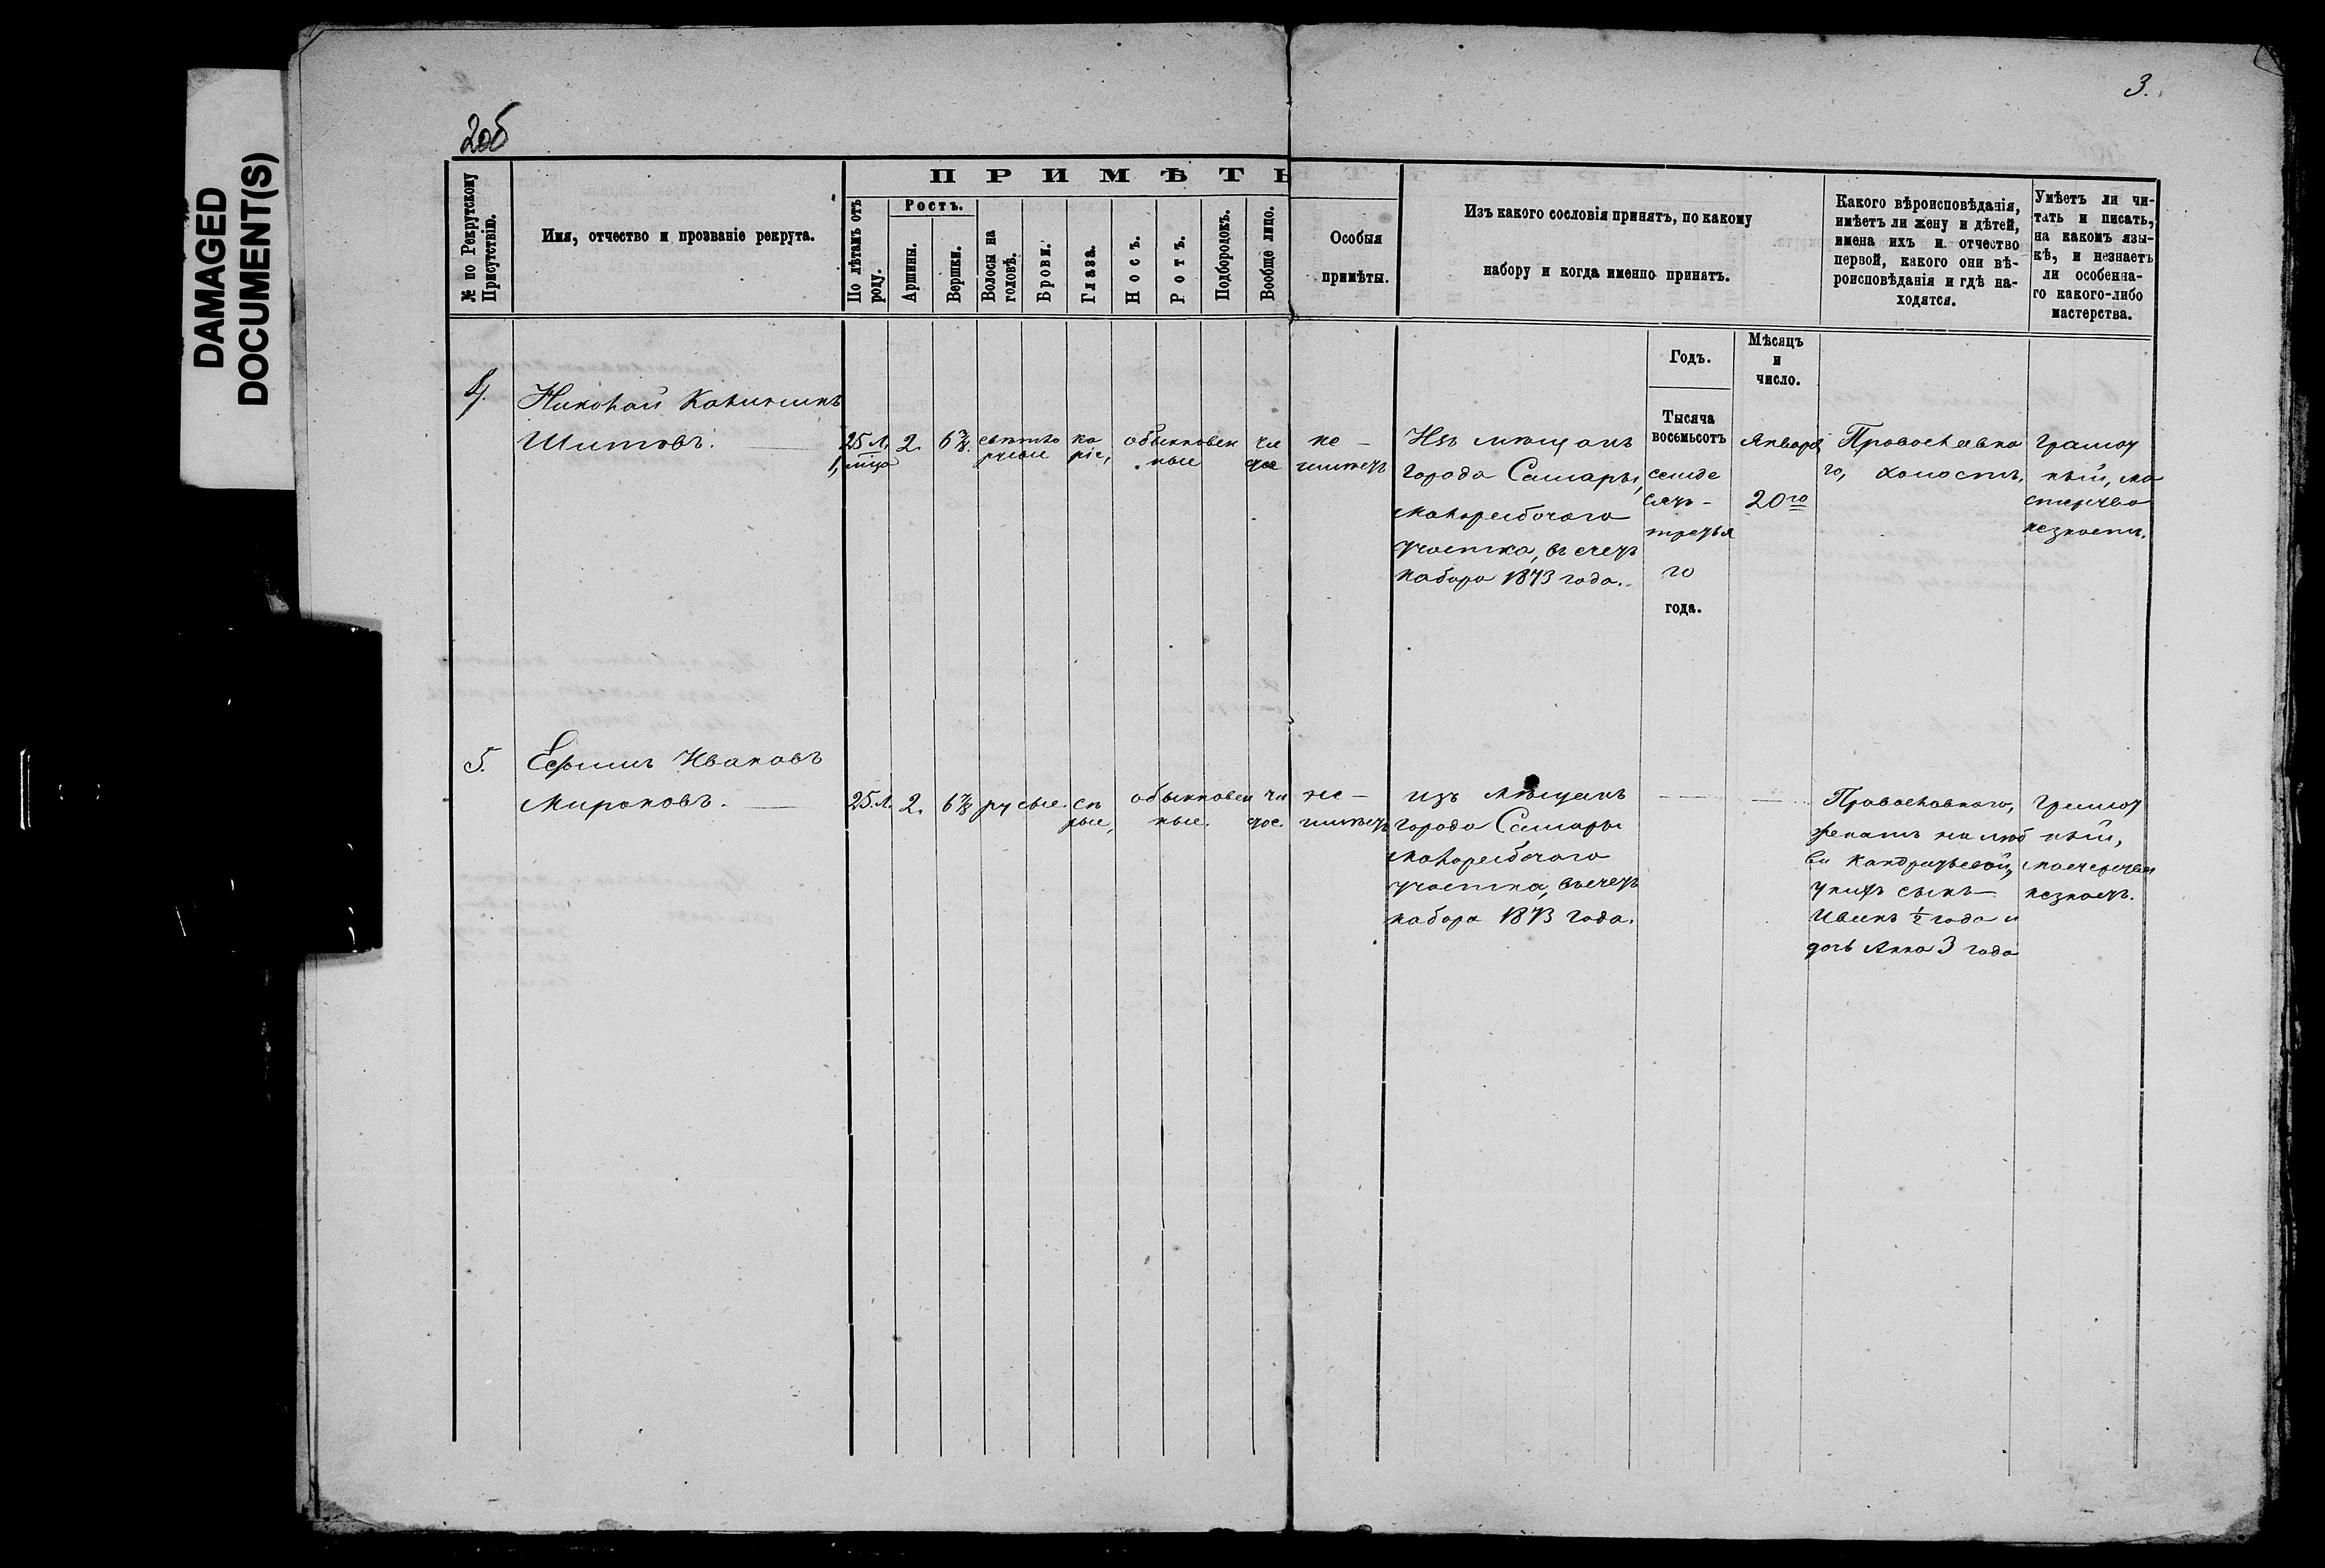 DAMAGED
DOCUMENT(S)
2об
3.
№ по Рекрутскому
Присутствію.
Имя, отчество и прозваніе рекрута.
ПРИМѢТЫ
По лѣтамъ отъ
роду.
Ростъ.
Аршины.
Вершки.
Волосы на
головѣ.
Брови.
Глаза.
Носъ.
Ротъ.
Подбородокъ.
Вообще лицо.
Особыя
примѣты.
Изъ какого сословія принятъ, по какому
набору и когда именно принятъ.
Какого вѣроисповѣданія,
имѣетъ ли жену и дѣтей,
имена ихъ и отчество
первой, какого они вѣ-
роисповѣданія и гдѣ на-
ходятся.
Умѣетъ ли чи-
тать и писать,
на какомъ язы-
кѣ, и незнаетъ
ли особенна-
го какого-либо
мастерства.
Годъ.
Мѣсяцъ
и
число.
4.
Николай
Шитовъ.
25 л.
2.
6 7/8.
свѣтло
русые
ка
ріе,
обыкновен
ные
чи
стое
не -
имѣетъ
Изъ мѣщанъ
города Самары,
малорабочаго
участка, въ счетъ
набора 1873 года.
Тысяча
восемьсотъ
семде
сятъ -
третья
го
года.
Января
20го
Православна
го, холостъ.
грамот
ный, ма
стерства
незнаетъ.
5.
Ефимъ Ивановъ
Мироновъ.
25. л.
2.
6 7/8
русые.
сѣ
рые,
обыкновен
ные.
чи
стое.
не -
имѣетъ
изъ мѣщанъ
города Самары
малорабочаго
участка, въ счетъ
набора 1873 года.
Православнаго,
женатъ на Люб
ви Кандратьевой,
у нихъ сынъ
Иванъ 1/2 года и
дочь Анна 3 года
грамот
ный,
мастерства
незнаетъ.